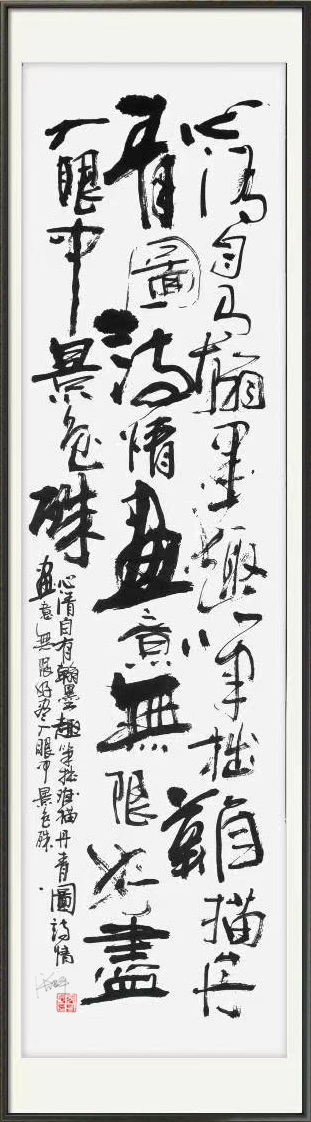 心清自有翰墨趣筆拙難描丹
青圖詩情畫意無限好盡
入眼中景色殊
心清自有翰墨趣筆拙难描丹青圖詩情
畫意無限好盡入眼中景色殊